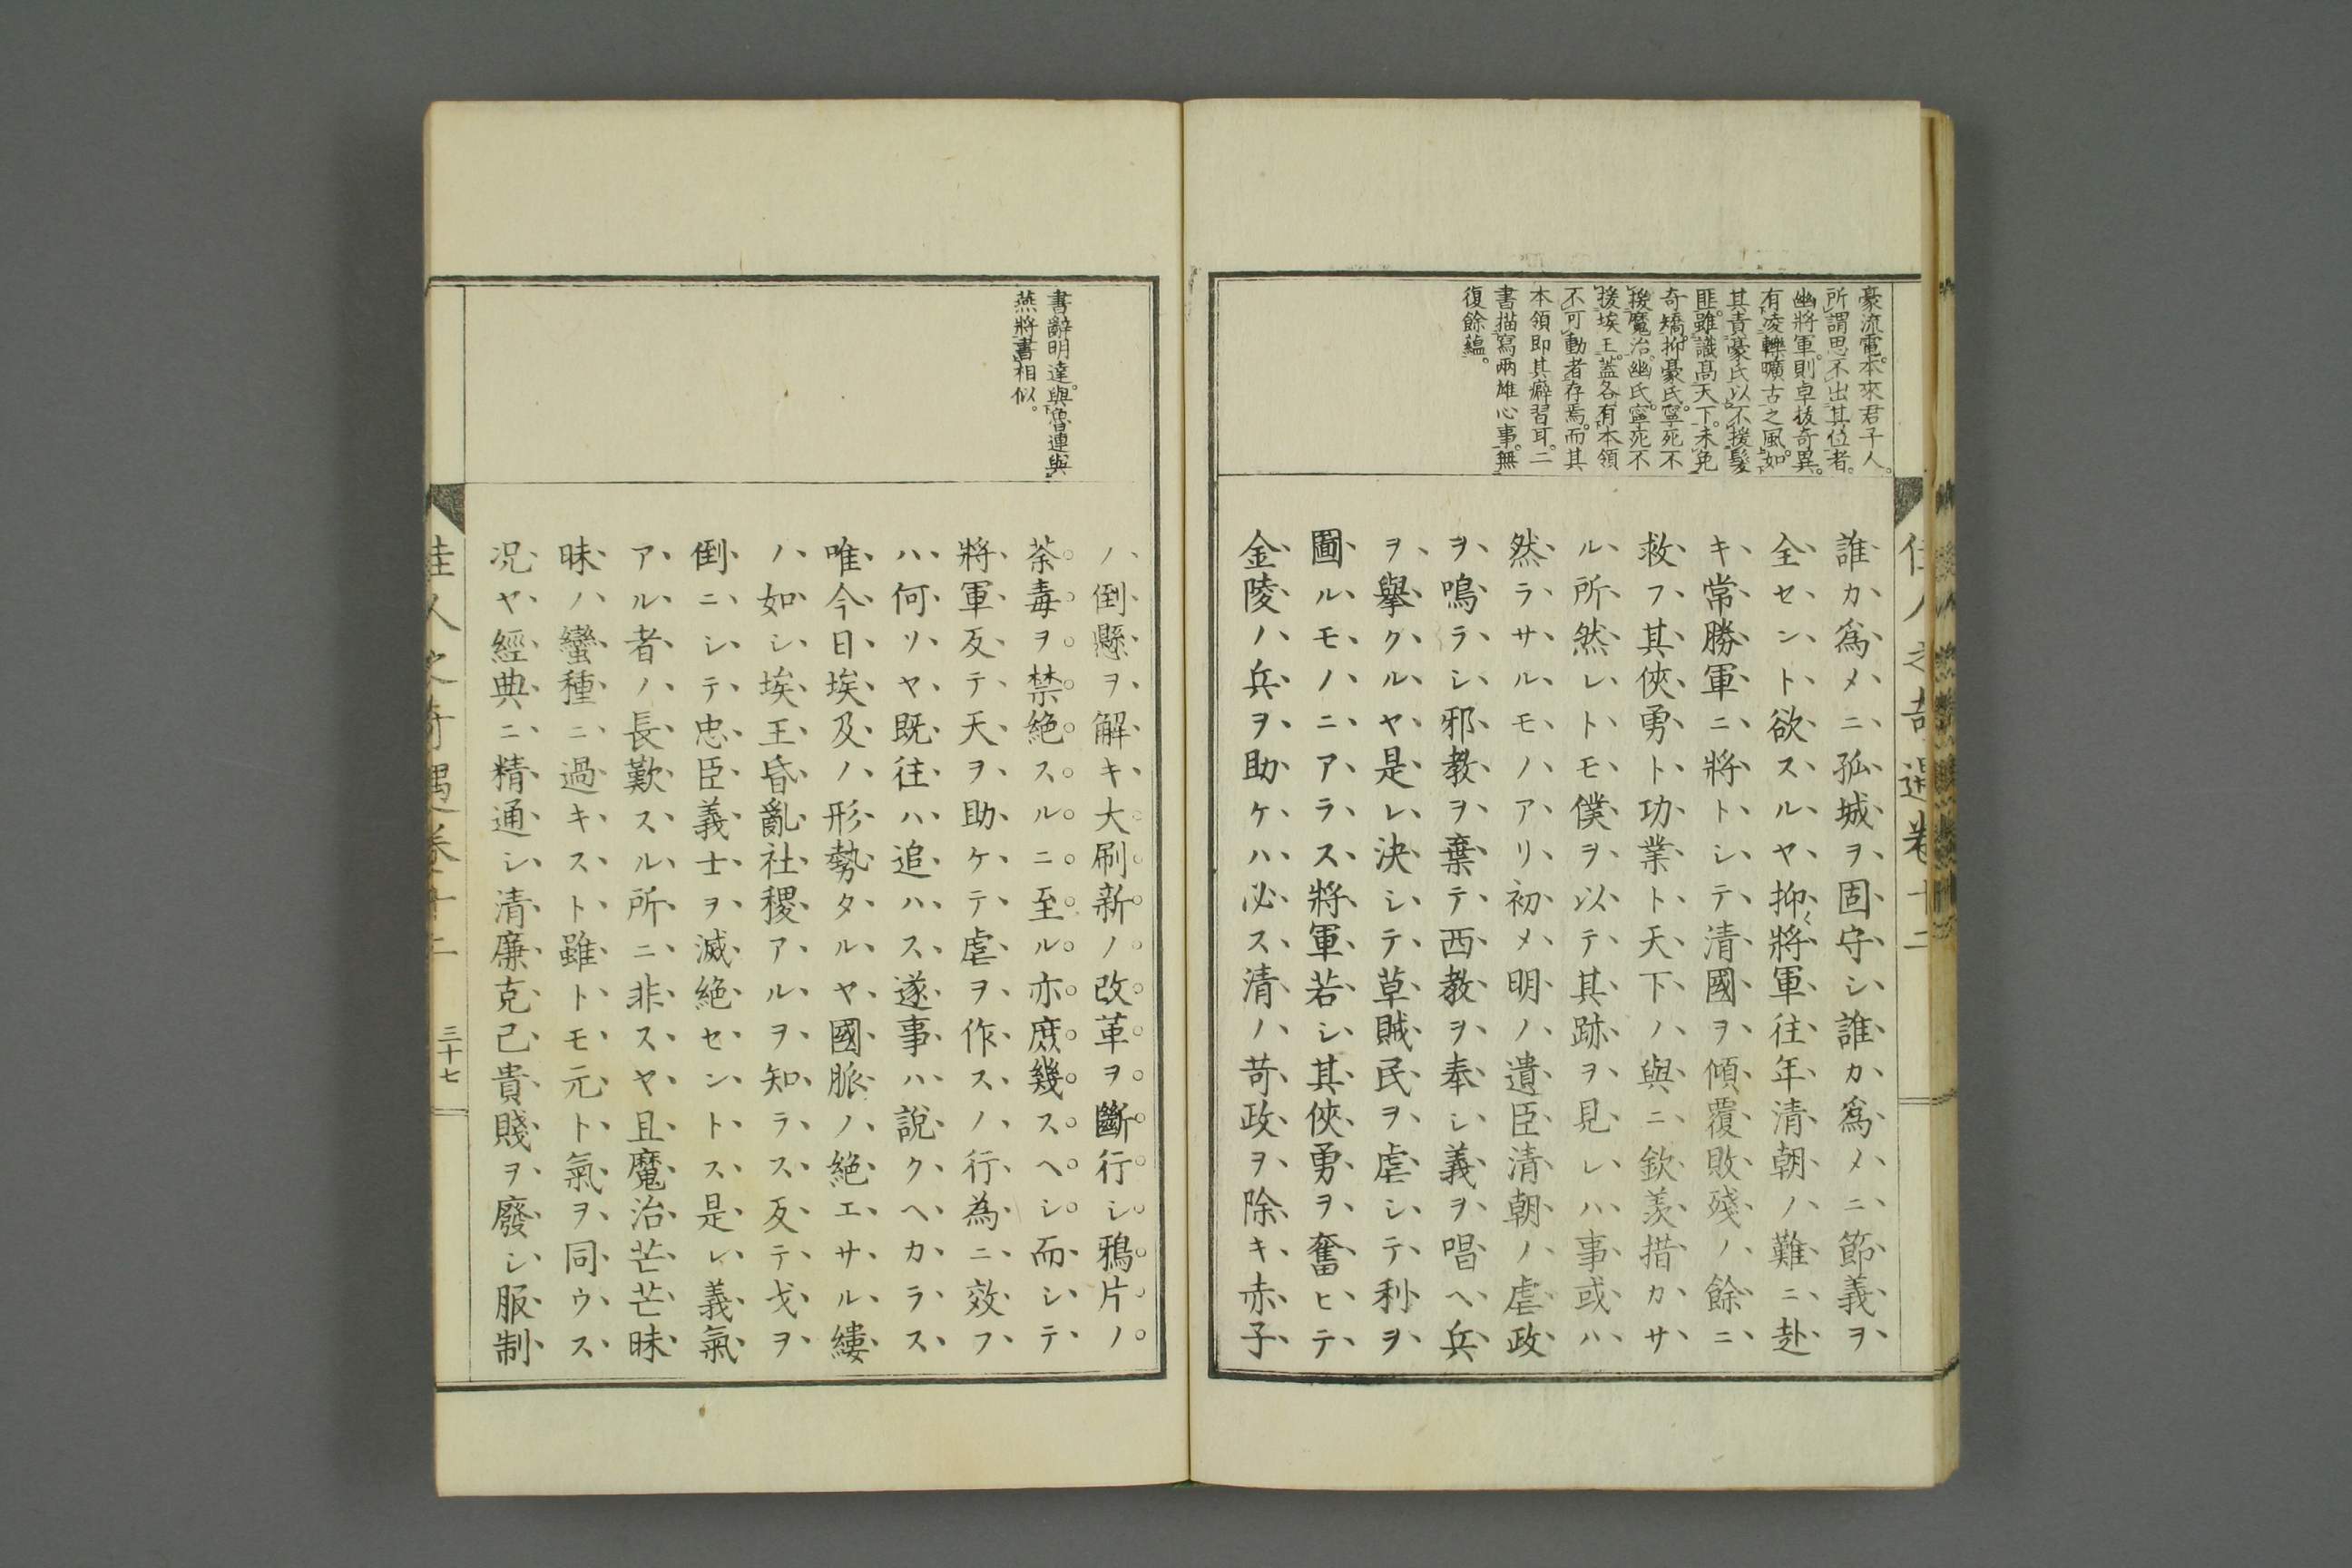 豪流電。本來君子人。
所謂思不出其位者。
幽將軍。則卓抜奇異。
有凌轢曠古之風。如
其責豪氏以不援髮
匪。雖識高天下。未免
奇矯。抑豪氏。寧死不
援魔治。幽氏。寧死不
援埃王。蓋各有本領
不可動者存焉。而其
本領即其癖習耳。二
書描寫兩雄心事。無
復餘蘊。
佳人之奇遇卷十二
誰カ爲メニ孤城ヲ固守シ誰カ爲メニ節義ヲ
全セント欲スルヤ抑〱將軍往年清朝ノ難ニ赴
キ常勝軍ニ將トシテ清國ヲ傾覆敗殘ノ餘ニ
救フ其俠勇ト功業ト天下ノ與ニ欽羨措カサ
ル所然レトモ僕ヲ以テ其跡ヲ見レハ事或ハ
然ラサルモノアリ初メ明ノ遺臣清朝ノ虐政
ヲ鳴ラシ邪教ヲ棄テ西教ヲ奉シ義ヲ唱ヘ兵
ヲ擧クルヤ是レ決シテ草賊民ヲ虐シテ利ヲ
圖ルモノニアラス將軍若シ其俠勇ヲ奮ヒテ
金陵ノ兵ヲ助ケハ必ス清ノ苛政ヲ除キ赤子
書辭明達。與魯連與
燕將書相似。
ノ倒懸ヲ解キ大刷新ノ改革ヲ斷行シ鴉片ノ
荼毒ヲ禁絶スルニ至ル亦庶幾スヘシ而シテ
將軍反テ天ヲ助ケテ虐ヲ作スノ行為ニ效フ
ハ何ソヤ既往ハ追ハス遂事ハ説クヘカラス
唯今日埃及ノ形勢タルヤ國脈ノ絶エサル縷
ノ如シ埃王昏亂社稷アルヲ知ラス反テ戈ヲ
倒ニシテ忠臣義士ヲ滅絶セントス是レ義氣
アル者ノ長歎スル所ニ非スヤ且魔治芒芒昧
昧ノ蠻種ニ過キスト雖トモ元ト氣ヲ同ウス
況ヤ經典ニ精通シ清廉克己貴賤ヲ廢シ服制
佳人之奇遇卷十二
三十七